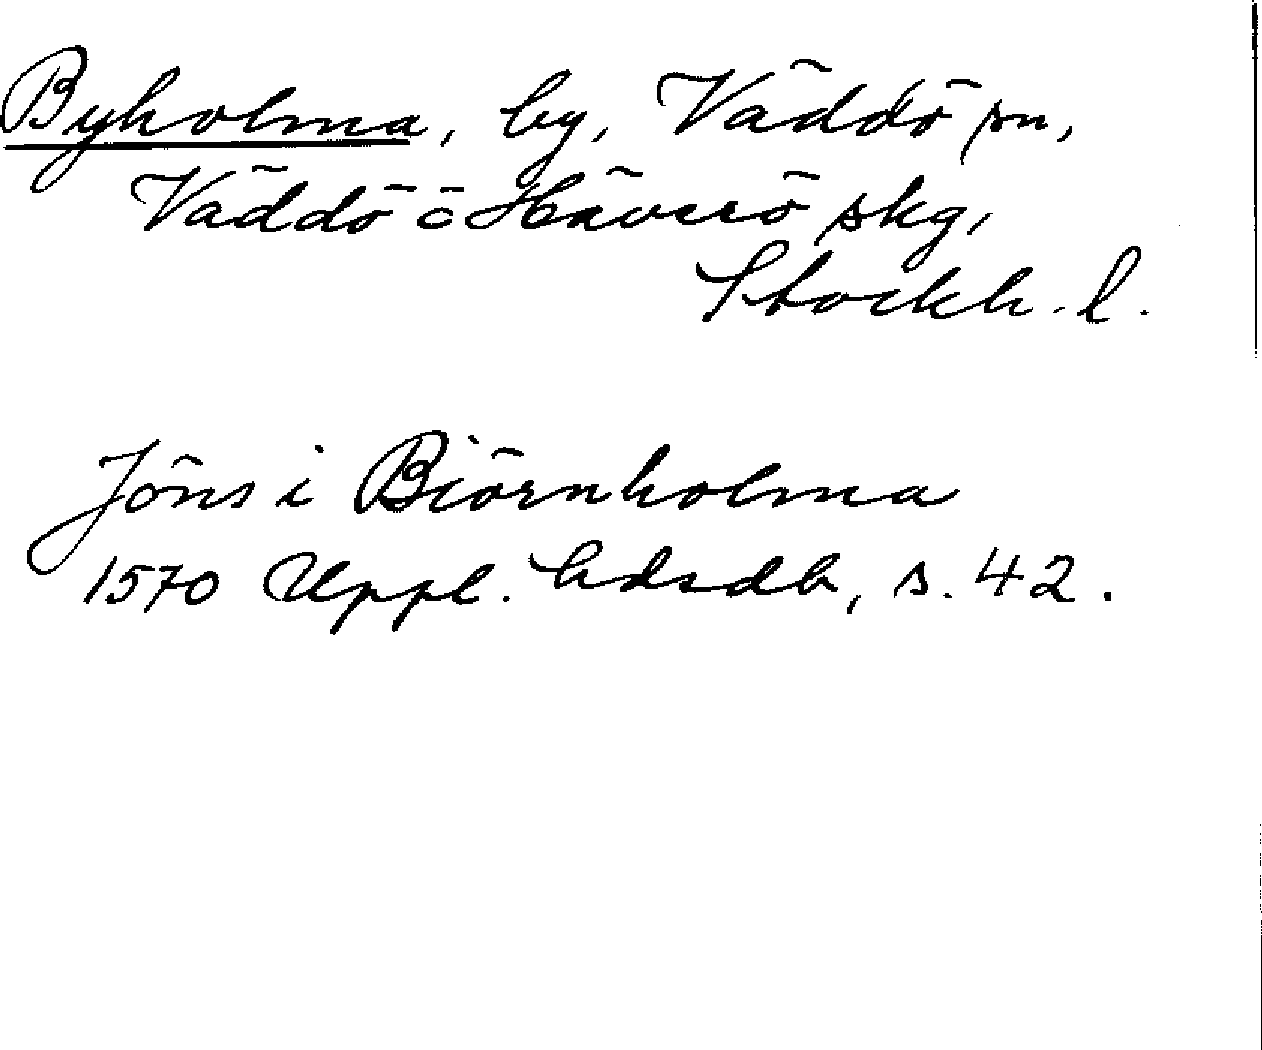 Byholma, by, Väddö sn,
Väddö o Häverö skg,
Stockh. l.
Jöns i Biörnholma
1570 Uppl. hdsdb, s. 42.